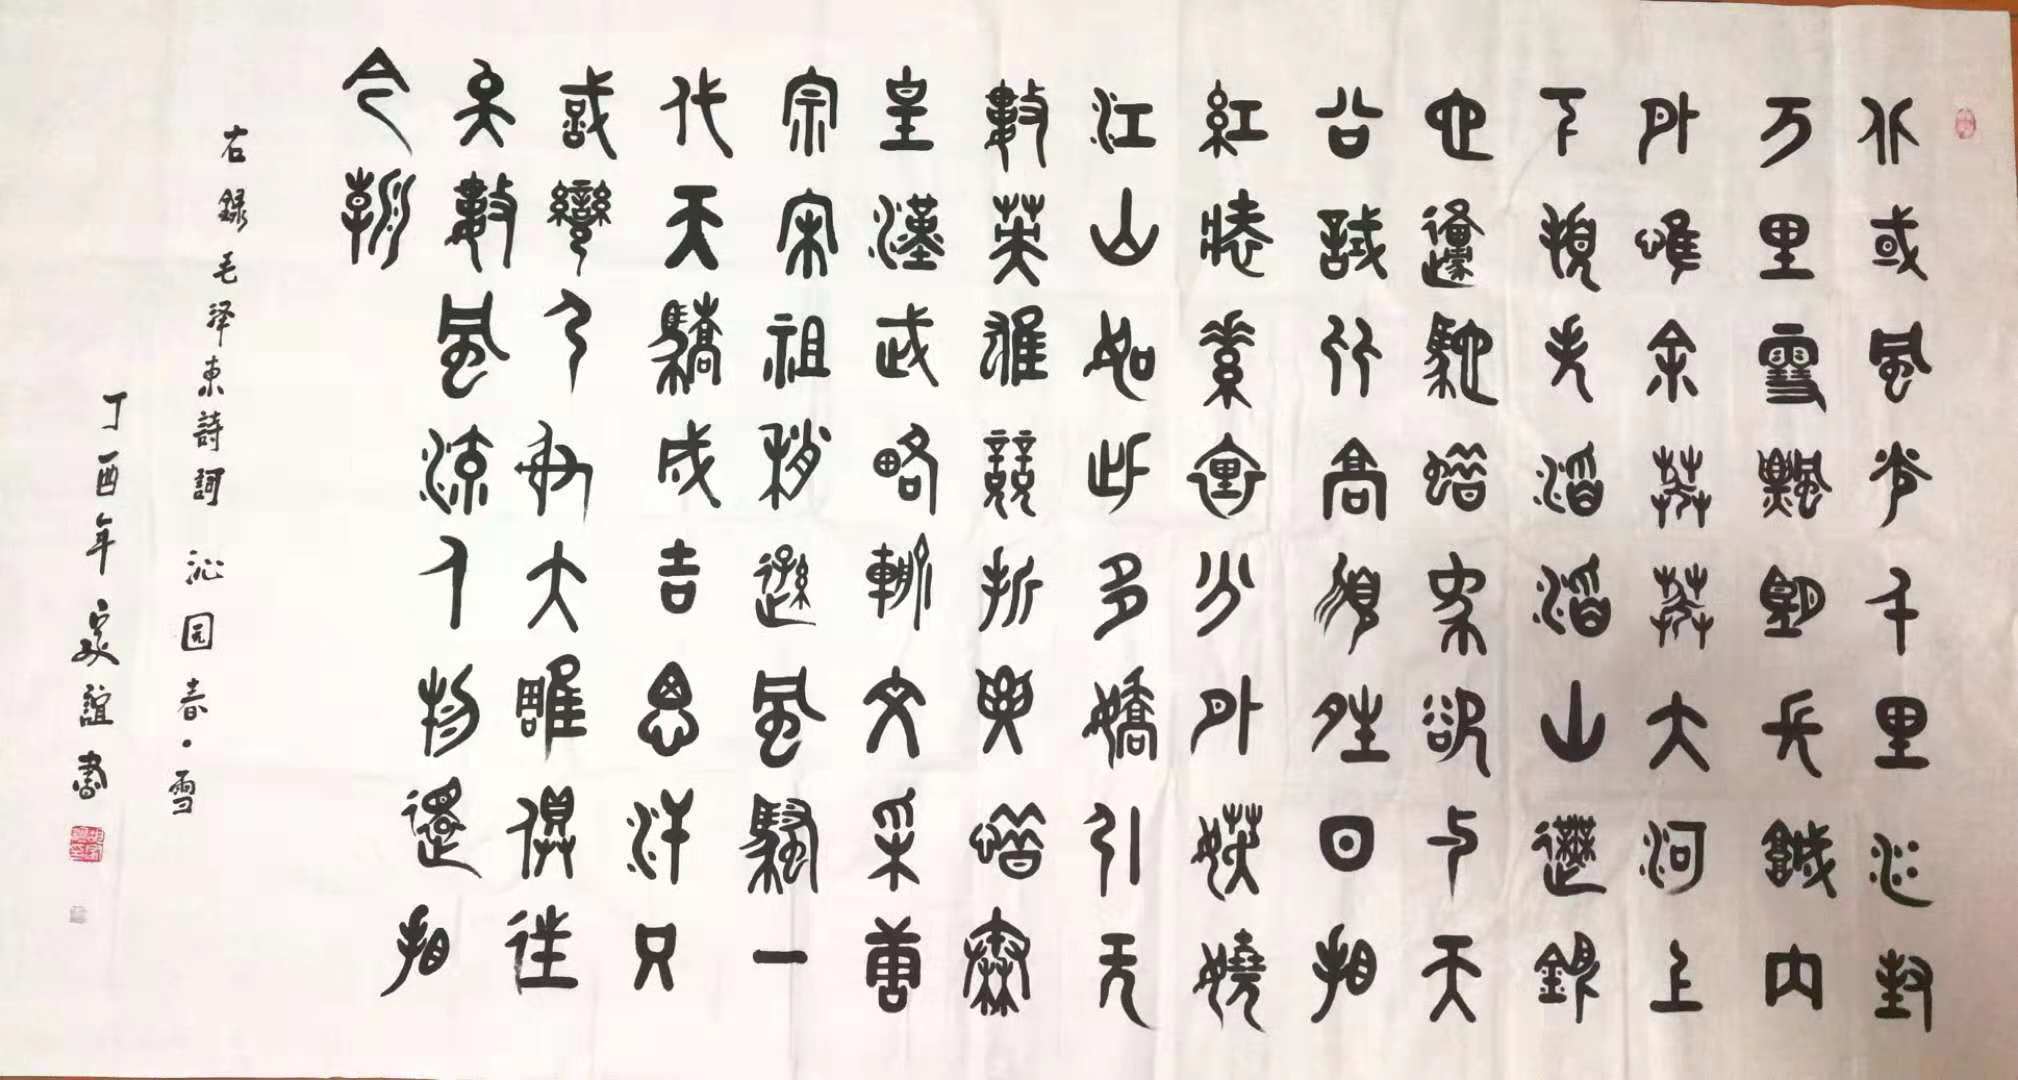 北或風光千里冰封
万里雪飄望長城内
外唯余莽莽大河上
下頓失滔滔山舞銀
蛇邍馳蜡象欲与天
公試比高須晴日相
紅装素裹分外妖嬈
江山如此多嬌引无
數英雄競折要惜秦
皇漢武略輸文采唐
宗宋祖稍遜風騷一
代天驕成吉思汗只
識彎弓射大雕俱往
矣數風流人物還相
今朝
右録毛泽東詩詞 沁园春·雪
丁酉年 誼書